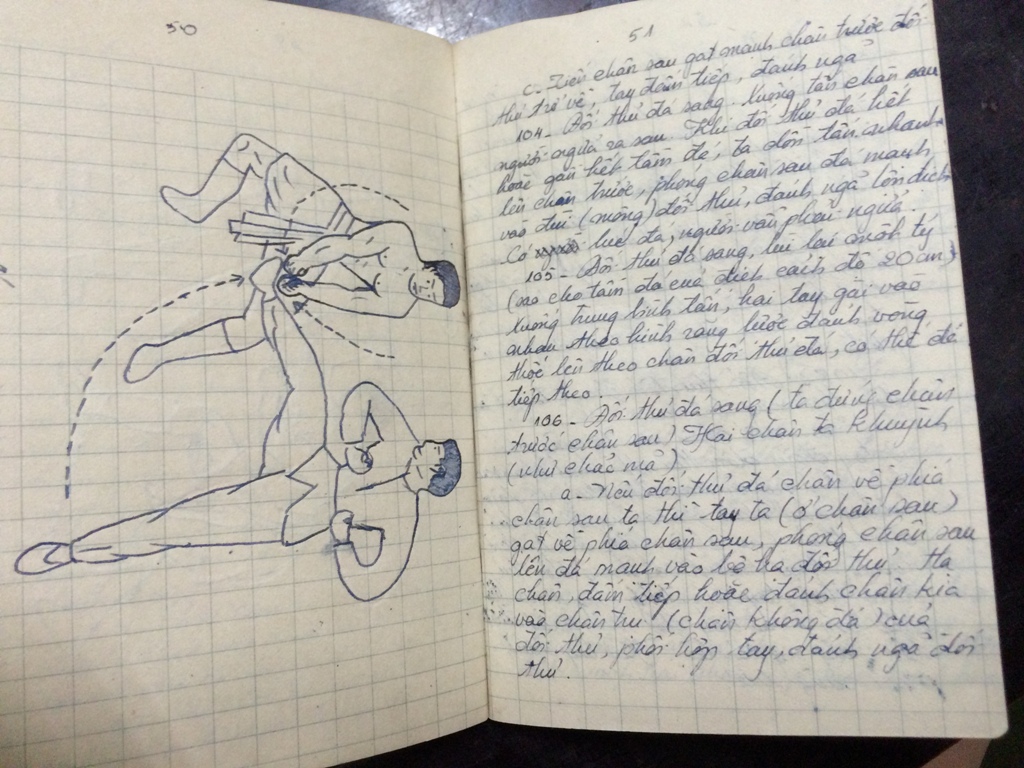 50
51
c- Tiến chân sau gạt mạnh chân trước đối
thủ trở về, tay đấm tiếp, đánh ngã
104- Đối thủ đá sang. Xuống tấn chân sau
người ngửa ra sau. Khi đối thủ đá hết
hoặc gần hết tầm đá, ta dồn tấn nhanh
lên chân trước, phóng chân sau đá mạnh
vào đùi (mông) đối thủ, đánh ngã lộn địch
Cố lúc đá, người vẫn phải ngửa.
105- Đối thủ đá sang, lùi lại một tý
(sao cho tầm đá của địch cách độ 20 cm)
Xuống trung bình tấn, hai tay gài vào
nhau theo hình rang lược đánh vòng
thốc lên theo chân đối thủ đá, có thể đá
tiếp theo.
106- Đối thủ đá sang (ta đứng chân
trước chân sau) Hai chân ta khuỳnh
(như chảo mã)
a- Nếu đối thủ đá chân về phía
chân sau ta thì tay ta (ở chân sau)
gạt về phía chân sau, phóng chân sau
lên đá mạnh vào bộ hạ đối thủ. Hạ
chân, đấm tiếp hoặc đánh chân kia
vào chân trụ (chân không đá) của
đối thủ, phối hợp tay, đánh ngã đối
thủ.